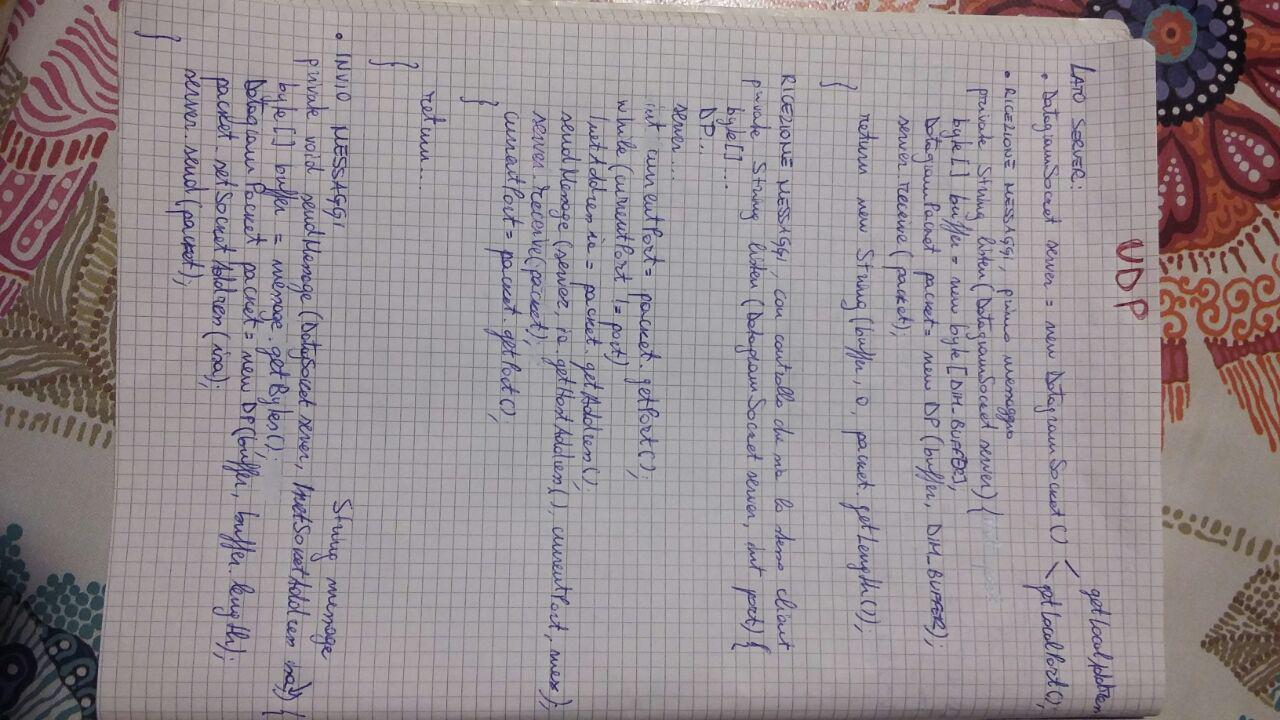 UDP
LATO SERVER:
• DatagramSocket server = new DatagramSocket() < getLocalAddress
getLocalPort();
• RICEZIONE MESSAGGI, primo messaggio
private String listen (DatagramSocket server) {
byte[] buffer = new byte[DIM_BUFFER];
DatagramPacket packet = new DP (buffer, DIM_BUFFER);
server.receive (packet);
return new String (buffer, 0, packet.getLength());
}
RICEZIONE MESSAGGI, con controllo che sia lo stesso client
private String listen (DatagramSocket server, int port) {
byte[]....
DP...
server....
int currentPort = packet.getPort();
while (currentPort != port)
InetAddress ia = packet.getAddress();
sendMessage (server, ia.getHostAddress(), currentPort, mess);
server.receive(packet);
currentPort = packet.getPort();
}
return....
}
• INVIO MESSAGGI
String message
private void sendMessage (DatagSocket server, InetSocketAddress isa) {
byte[] buffer = message.getBytes();
DatagramPacket packet = new DP(buffer, buffer.length);
packet.setSocketAddress(isa);
server.send(packet);
}